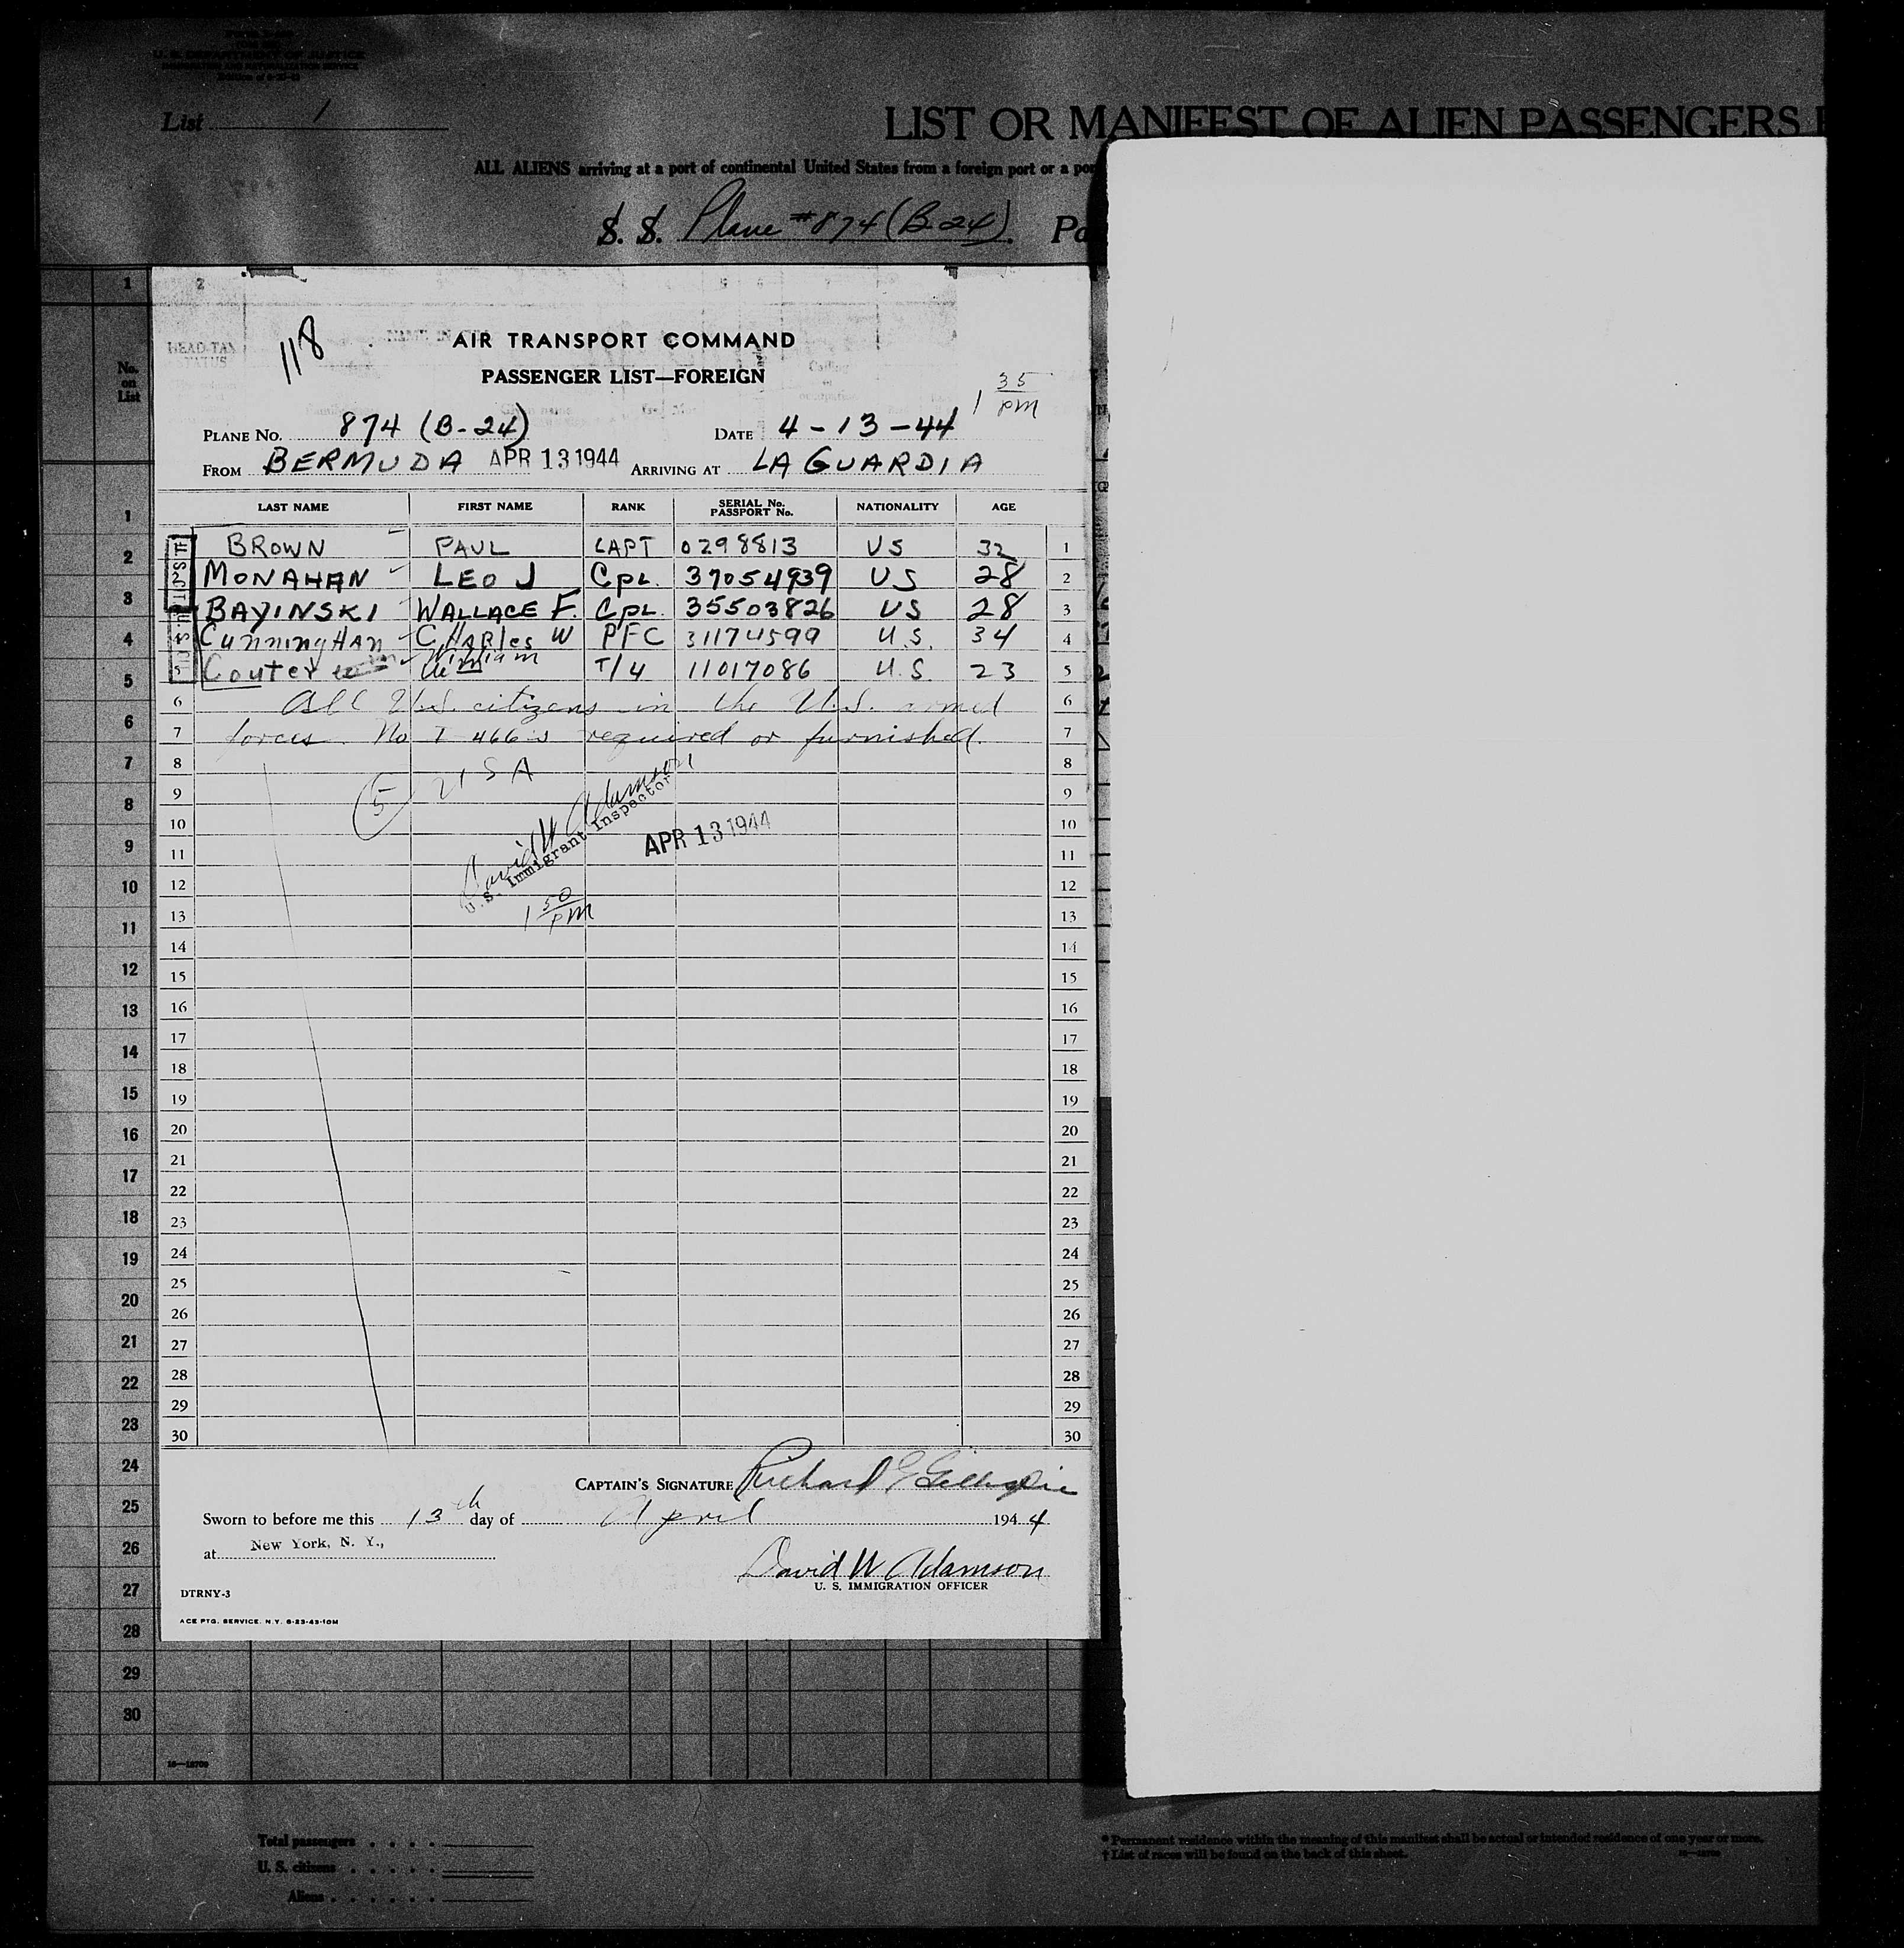 U. S. DEPARTMENT OF JUSTICE
IMMIGRATION AND NATURALIZATION SERVICE
List 1
LIST OR MANIFEST OF ALIEN PASSENGERS
ALL ALIENS arriving at a port of continental United States from a foreign port or a
S. S. Plane #874 (B-24)
1 2
No. on List
HEAD-TAX STATUS
118
AIR TRANSPORT COMMAND
PASSENGER LIST—FOREIGN
1 35 PM
PLANE NO. 874 (B-24) DATE 4-13-44
FROM BERMUDA APR 13 1944 ARRIVING AT LA GUARDIA
LAST NAME FIRST NAME RANK SERIAL No. PASSPORT No. NATIONALITY AGE
BROWN PAUL CAPT 0298813 US 32 1
MONAHAN LEO J CPL. 37054939 US 28 2
BAYINSKI WALLACE F. CPL 35503826 US 28 3
CunningHAn CHARles W PFC 31174599 U.S. 34 4
Couter William T/4 11017086 U.S 23 5
6 All U.S. citizens in the U.S. armed 6
7 forces. No I 466's required or furnished. 7
8 8
(5) USA
9 9
10 10
David W Adamson
U.S. Immigrant Inspector
APR 13 1944
11 11
12 12
1 50 PM
13 13
14 14
15 15
16 16
17 17
18 18
19 19
20 20
21 21
22 22
23 23
24 24
25 25
26 26
27 27
28 28
29 29
30 30
CAPTAIN'S SIGNATURE Richard E Gillespie
Sworn to before me this 13th day of April 1944
at New York, N. Y.,
David W Adamson
U. S. IMMIGRATION OFFICER
DTRNY-3
ACE PTG. SERVICE. N.Y. 6-23-43-10M
1
2
3
4
5
6
7
8
9
10
11
12
13
14
15
16
17
18
19
20
21
22
23
24
25
26
27
28
29
30
16—18709
Total passengers
U. S. citizens
Aliens
* Permanent residence within the meaning of this manifest shall be actual or intended residence of one year or more.
† List of races will be found on the back of this sheet.
16—18709